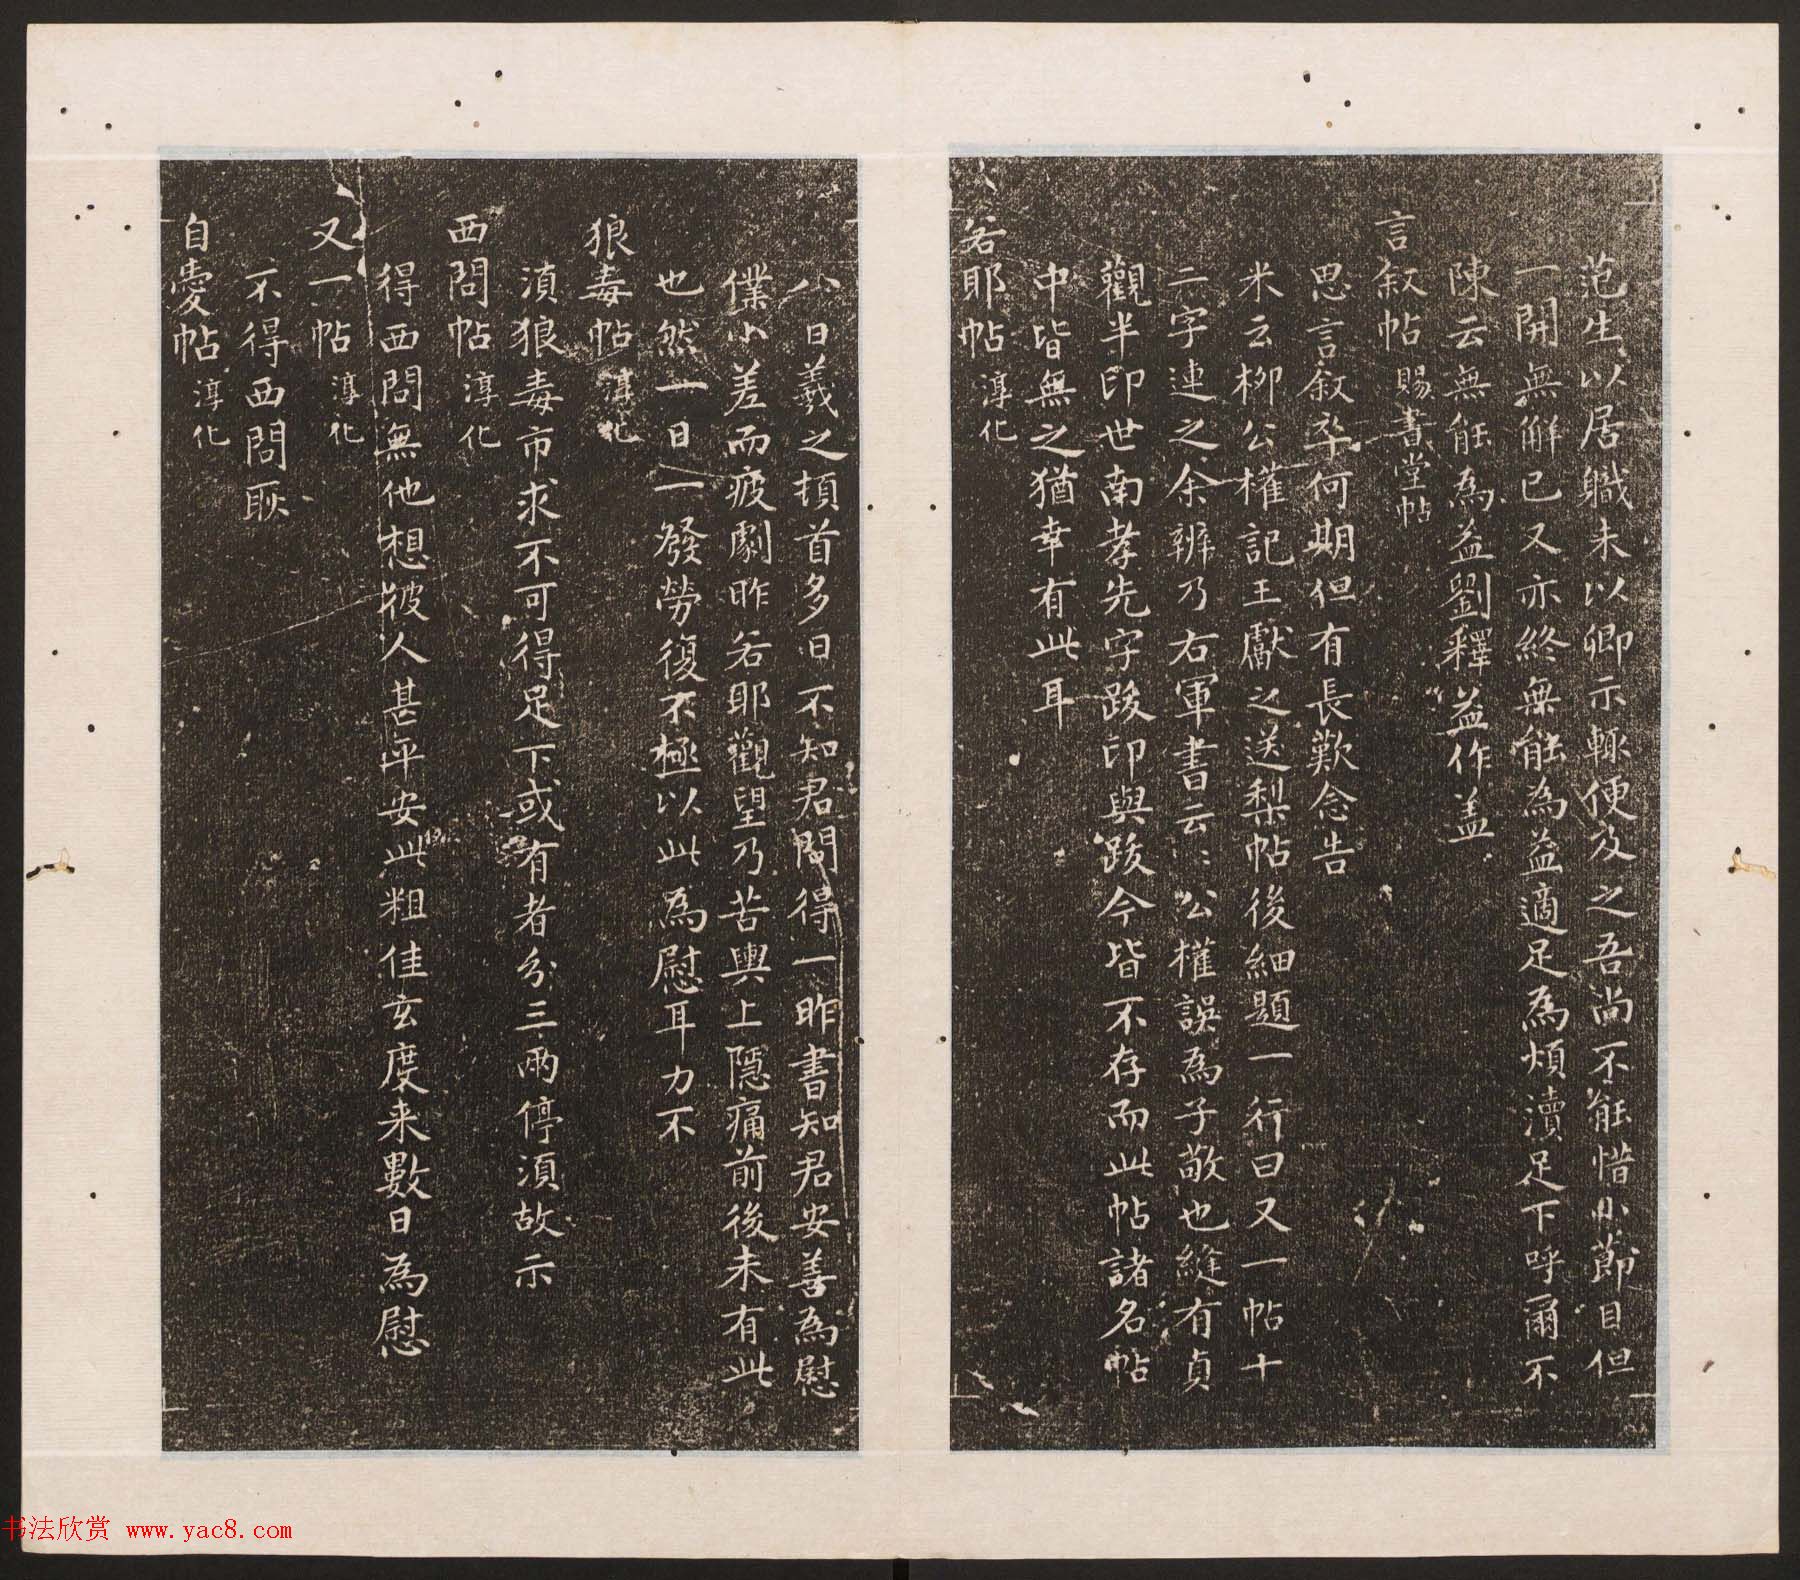 范生以居職未以卿示輒便及之吾尚不能惜小節目但
一開無解已又亦終無能為益適足為煩瀆足下呼爾不
陳云無能為益劉釋益作盖
言叙帖 賜書堂帖
思言叙卒何期但有長歎念告
米云柳公權記王獻之送梨帖後細題一行曰又一帖十
二字連之余辨乃右軍書云云公權誤為子敬也縫有貞
觀半印世南孝先字跋印與跋今皆不存而此帖諸名帖
中皆無之猶幸有此耳
若耶帖 淳化
八日羲之頓首多日不知君問得一昨書知君安善為慰
僕小差而疲劇昨若耶觀望乃苦輿上隱痛前後未有此
也然一日一發勞復不極以此為慰耳力不
狼毒帖 淳化
湏狼毒市求不可得足下或有者分三兩停湏故示
西問帖 淳化
得西問無他想彼人甚平安此粗佳玄度来數日為慰
又一帖 淳化
不得西問耿
自愛帖 淳化
书法欣赏 www.yac8.com